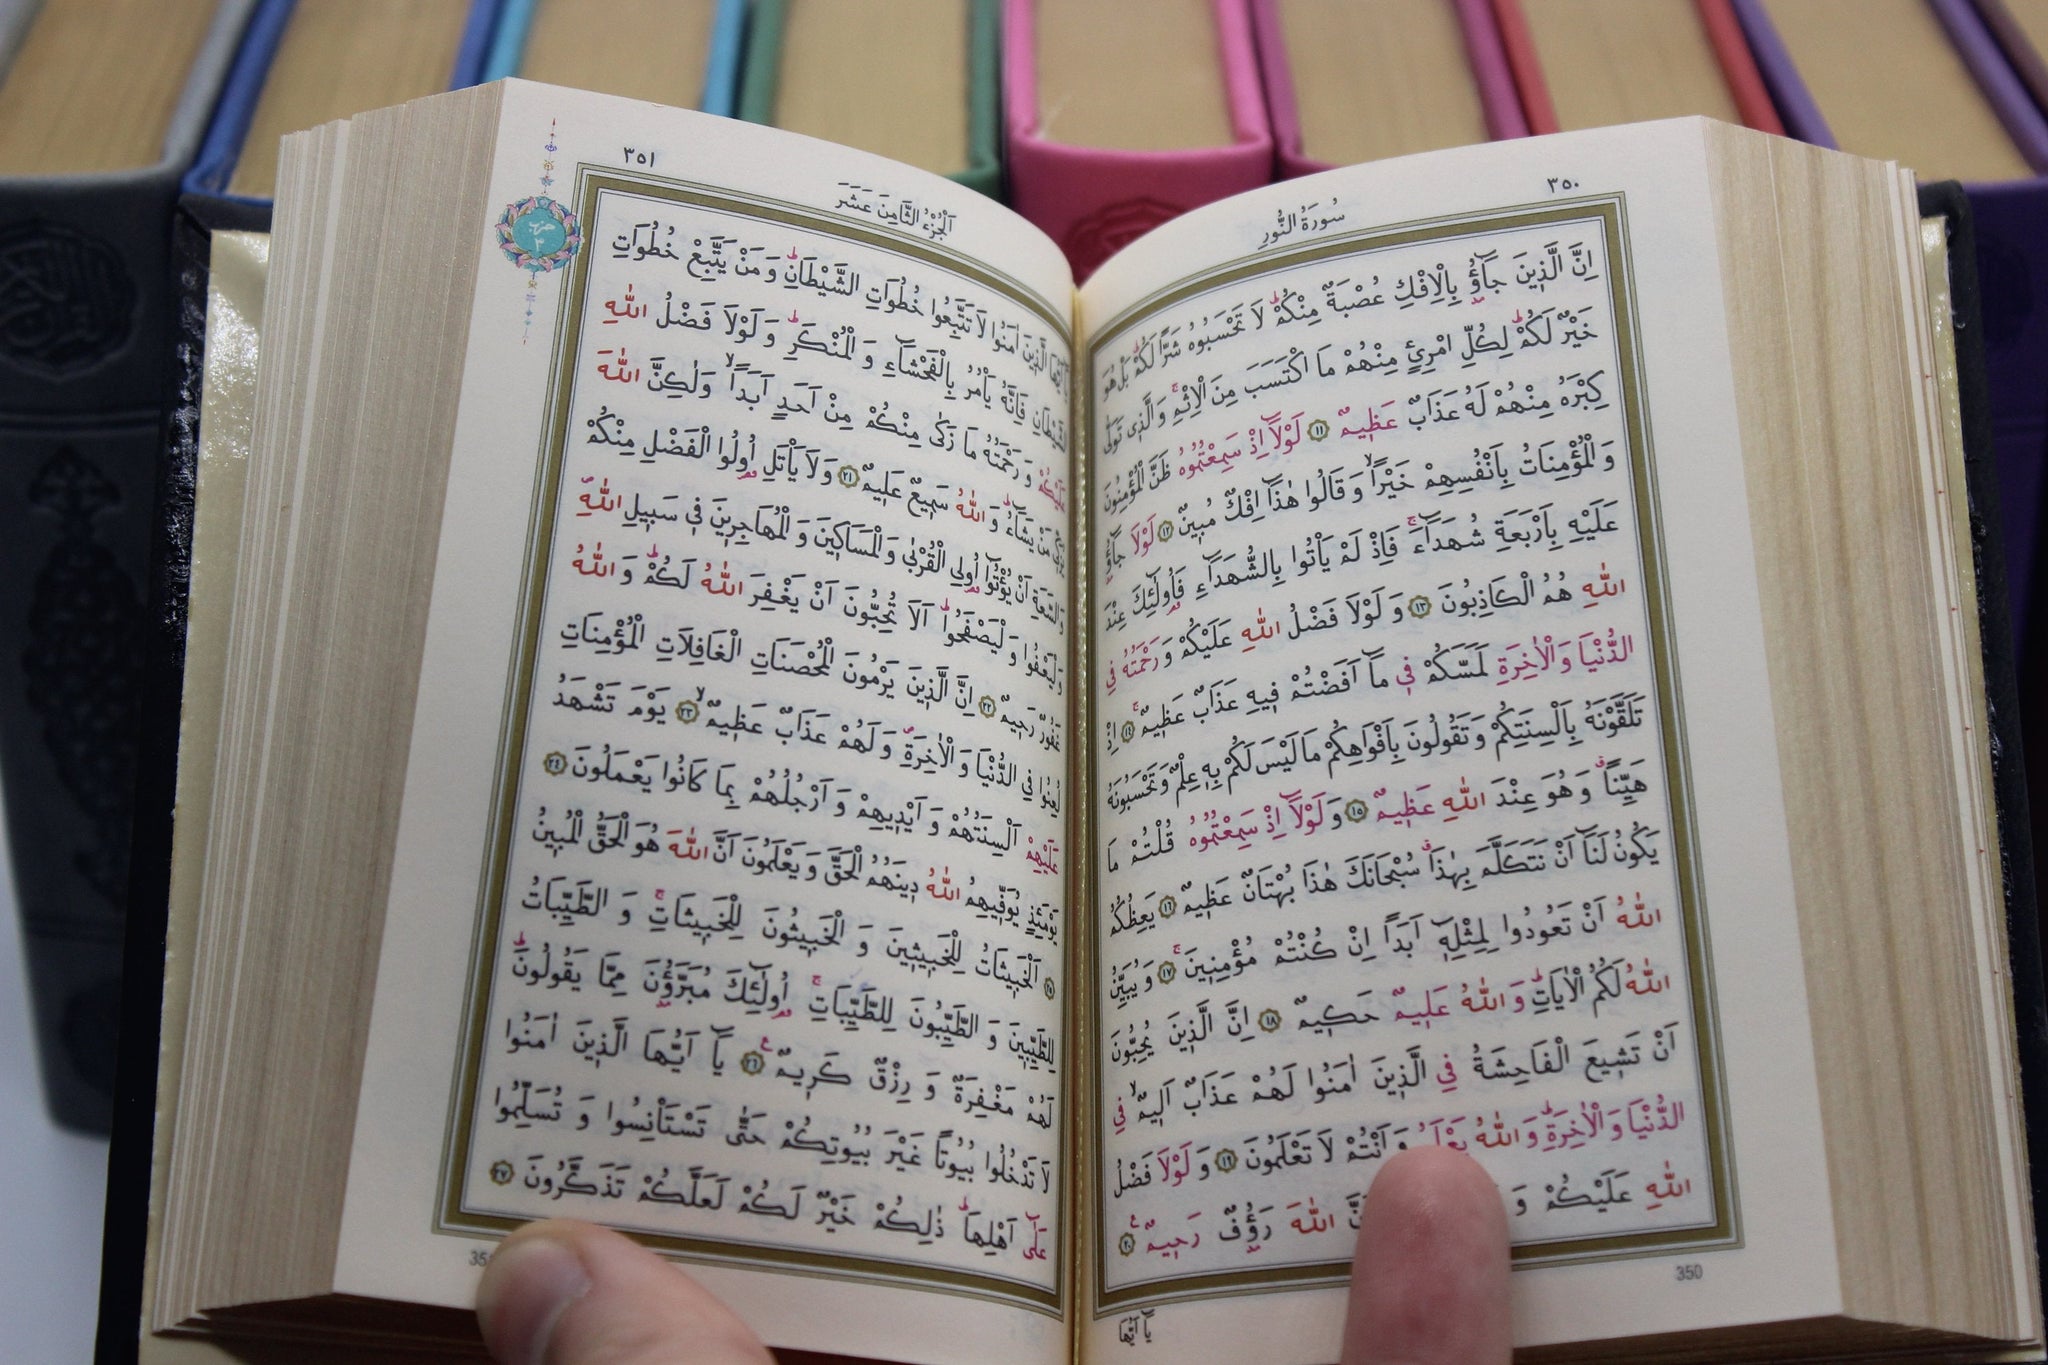 ٣٥٠
سُورَةُ النُّورِ
اِنَّ الَّذٖينَ جَٓاؤُ۫ بِالْاِفْكِ عُصْبَةٌ مِنْكُمْؕ لَا تَحْسَبُوهُ شَرًّا لَكُمْؕ بَلْ هُوَ
خَيْرٌ لَكُمْؕ لِكُلِّ امْرِئٍ مِنْهُمْ مَا اكْتَسَبَ مِنَ الْاِثْمِۚ وَالَّذٖى تَوَلّٰى
كِبْرَهُ مِنْهُمْ لَهُ عَذَابٌ عَظٖيمٌ ﴿١١﴾ لَوْلَٓا اِذْ سَمِعْتُمُوهُ ظَنَّ الْمُؤْمِنُونَ
وَالْمُؤْمِنَاتُ بِاَنْفُسِهِمْ خَيْرًاۙ وَقَالُوا هٰذَٓا اِفْكٌ مُبٖينٌ ﴿١٢﴾ لَوْلَا جَٓاؤُ۫
عَلَيْهِ بِاَرْبَعَةِ شُهَدَٓاءَۚ فَاِذْ لَمْ يَاْتُوا بِالشُّهَدَٓاءِ فَاُو۬لٰٓئِكَ عِنْدَ
اللّٰهِ هُمُ الْكَاذِبُونَ ﴿١٣﴾ وَلَوْلَا فَضْلُ اللّٰهِ عَلَيْكُمْ وَرَحْمَتُهُ فِي
الدُّنْيَا وَالْاٰخِرَةِ لَمَسَّكُمْ فٖي مَٓا اَفَضْتُمْ فٖيهِ عَذَابٌ عَظٖيمٌۚ ﴿١٤﴾ اِذْ
تَلَقَّوْنَهُ بِاَلْسِنَتِكُمْ وَتَقُولُونَ بِاَفْوَاهِكُمْ مَا لَيْسَ لَكُمْ بِهٖ عِلْمٌ وَتَحْسَبُونَهُ
هَيِّنًاۗ وَهُوَ عِنْدَ اللّٰهِ عَظٖيمٌ ﴿١٥﴾ وَلَوْلَٓا اِذْ سَمِعْتُمُوهُ قُلْتُمْ مَا
يَكُونُ لَنَٓا اَنْ نَتَكَلَّمَ بِهٰذَاۗ سُبْحَانَكَ هٰذَا بُهْتَانٌ عَظٖيمٌ ﴿١٦﴾ يَعِظُكُمُ
اللّٰهُ اَنْ تَعُودُوا لِمِثْلِهٖٓ اَبَدًا اِنْ كُنْتُمْ مُؤْمِنٖينَۚ ﴿١٧﴾ وَيُبَيِّنُ
اللّٰهُ لَكُمُ الْاٰيَاتِؕ وَاللّٰهُ عَلٖيمٌ حَكٖيمٌ ﴿١٨﴾ اِنَّ الَّذٖينَ يُحِبُّونَ
اَنْ تَشٖيعَ الْفَاحِشَةُ فِي الَّذٖينَ اٰمَنُوا لَهُمْ عَذَابٌ اَلٖيمٌۙ فِي
الدُّنْيَا وَالْاٰخِرَةِؕ وَاللّٰهُ يَعْلَمُ وَاَنْتُمْ لَا تَعْلَمُونَ ﴿١٩﴾ وَلَوْلَا فَضْلُ
اللّٰهِ عَلَيْكُمْ اللّٰهَ رَؤُ۫فٌ رَحٖيمٌ ﴿٢٠﴾
350
يَٓا اَيُّهَا
٣٥١
اَلْجُزْءُ الثَّامِنَ عَشَرَ
حزب
٣
يَٓا اَيُّهَا الَّذٖينَ اٰمَنُوا لَا تَتَّبِعُوا خُطُوَاتِ الشَّيْطَانِؕ وَمَنْ يَتَّبِعْ خُطُوَاتِ
الشَّيْطَانِ فَاِنَّهُ يَاْمُرُ بِالْفَحْشَٓاءِ وَالْمُنْكَرِؕ وَلَوْلَا فَضْلُ اللّٰهِ
عَلَيْكُمْ وَرَحْمَتُهُ مَا زَكٰى مِنْكُمْ مِنْ اَحَدٍ اَبَدًاۙ وَلٰكِنَّ اللّٰهَ
يُزَكّٖي مَنْ يَشَٓاءُؕ وَاللّٰهُ سَمٖيعٌ عَلٖيمٌ ﴿٢١﴾ وَلَا يَاْتَلِ اُو۬لُوا الْفَضْلِ مِنْكُمْ
وَالسَّعَةِ اَنْ يُؤْتُٓوا اُو۬لِي الْقُرْبٰى وَالْمَسَاكٖينَ وَالْمُهَاجِرٖينَ فٖي سَبٖيلِ اللّٰهِۖ
وَلْيَعْفُوا وَلْيَصْفَحُواؕ اَلَا تُحِبُّونَ اَنْ يَغْفِرَ اللّٰهُ لَكُمْؕ وَاللّٰهُ
غَفُورٌ رَحٖيمٌ ﴿٢٢﴾ اِنَّ الَّذٖينَ يَرْمُونَ الْمُحْصَنَاتِ الْغَافِلَاتِ الْمُؤْمِنَاتِ
لُعِنُوا فِي الدُّنْيَا وَالْاٰخِرَةِۖ وَلَهُمْ عَذَابٌ عَظٖيمٌۙ ﴿٢٣﴾ يَوْمَ تَشْهَدُ
عَلَيْهِمْ اَلْسِنَتُهُمْ وَاَيْدٖيهِمْ وَاَرْجُلُهُمْ بِمَا كَانُوا يَعْمَلُونَ ﴿٢٤﴾
يَوْمَئِذٍ يُوَفّٖيهِمُ اللّٰهُ دٖينَهُمُ الْحَقَّ وَيَعْلَمُونَ اَنَّ اللّٰهَ هُوَ الْحَقُّ الْمُبٖينُ
﴿٢٥﴾ اَلْخَبٖيثَاتُ لِلْخَبٖيثٖينَ وَالْخَبٖيثُونَ لِلْخَبٖيثَاتِۚ وَالطَّيِّبَاتُ
لِلطَّيِّبٖينَ وَالطَّيِّبُونَ لِلطَّيِّبَاتِۚ اُو۬لٰٓئِكَ مُبَرَّؤُ۫نَ مِمَّا يَقُولُونَؕ
لَهُمْ مَغْفِرَةٌ وَرِزْقٌ كَرٖيمٌ ﴿٢٦﴾ يَٓا اَيُّهَا الَّذٖينَ اٰمَنُوا
لَا تَدْخُلُوا بُيُوتًا غَيْرَ بُيُوتِكُمْ حَتّٰى تَسْتَاْنِسُوا وَتُسَلِّمُوا
عَلٰٓى اَهْلِهَاؕ ذٰلِكُمْ خَيْرٌ لَكُمْ لَعَلَّكُمْ تَذَكَّرُونَ ﴿٢٧﴾